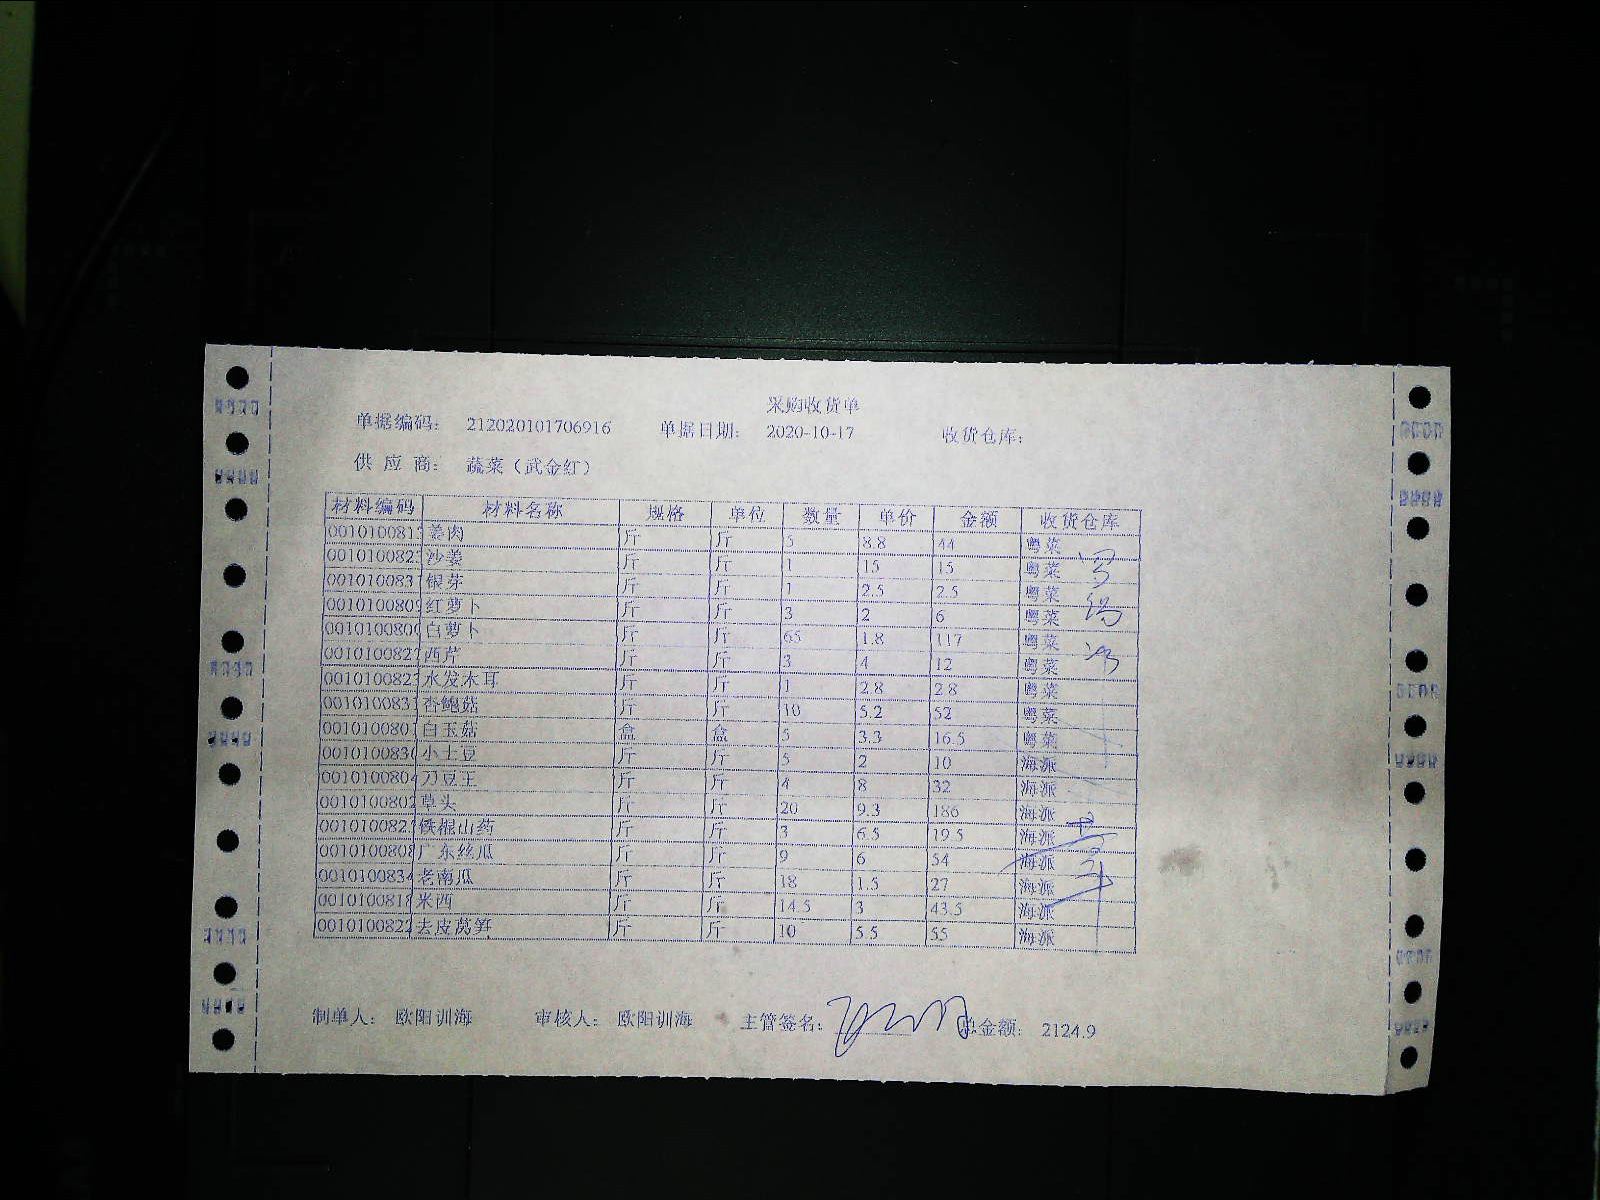 采购收货单
单据编码: 212020101706916 单据日期: 2020-10-17 收货仓库:
供 应 商: 蔬菜（武金红）
材料编码 材料名称 规格 单位 数量 单价 金额 收货仓库
001010081 姜肉 斤 斤 5 8.8 44 粤菜
001010082 沙姜 斤 斤 1 15 15 粤菜
001010083 银芽 斤 斤 1 2.5 2.5 粤菜
001010080 红萝卜 斤 斤 3 2 6 粤菜
001010080 白萝卜 斤 斤 65 1.8 117 粤菜
001010082 西芹 斤 斤 3 4 12 粤菜
001010082 水发木耳 斤 斤 1 2.8 2.8 粤菜
001010083 杏鲍菇 斤 斤 10 5.2 52 粤菜
001010080 白玉菇 盒 盒 5 3.3 16.5 粤菜
001010083 小土豆 斤 斤 5 2 10 海派
001010080 刀豆王 斤 斤 4 8 32 海派
001010080 草头 斤 斤 20 9.3 186 海派
001010082 铁棍山药 斤 斤 3 6.5 19.5 海派
001010080 广东丝瓜 斤 斤 9 6 54 海派
001010083 老南瓜 斤 斤 18 1.5 27 海派
001010081 米西 斤 斤 14.5 3 43.5 海派
001010082 去皮莴笋 斤 斤 10 5.5 55 海派
制单人: 欧阳训海 审核人: 欧阳训海 主管签名: 总金额: 2124.9